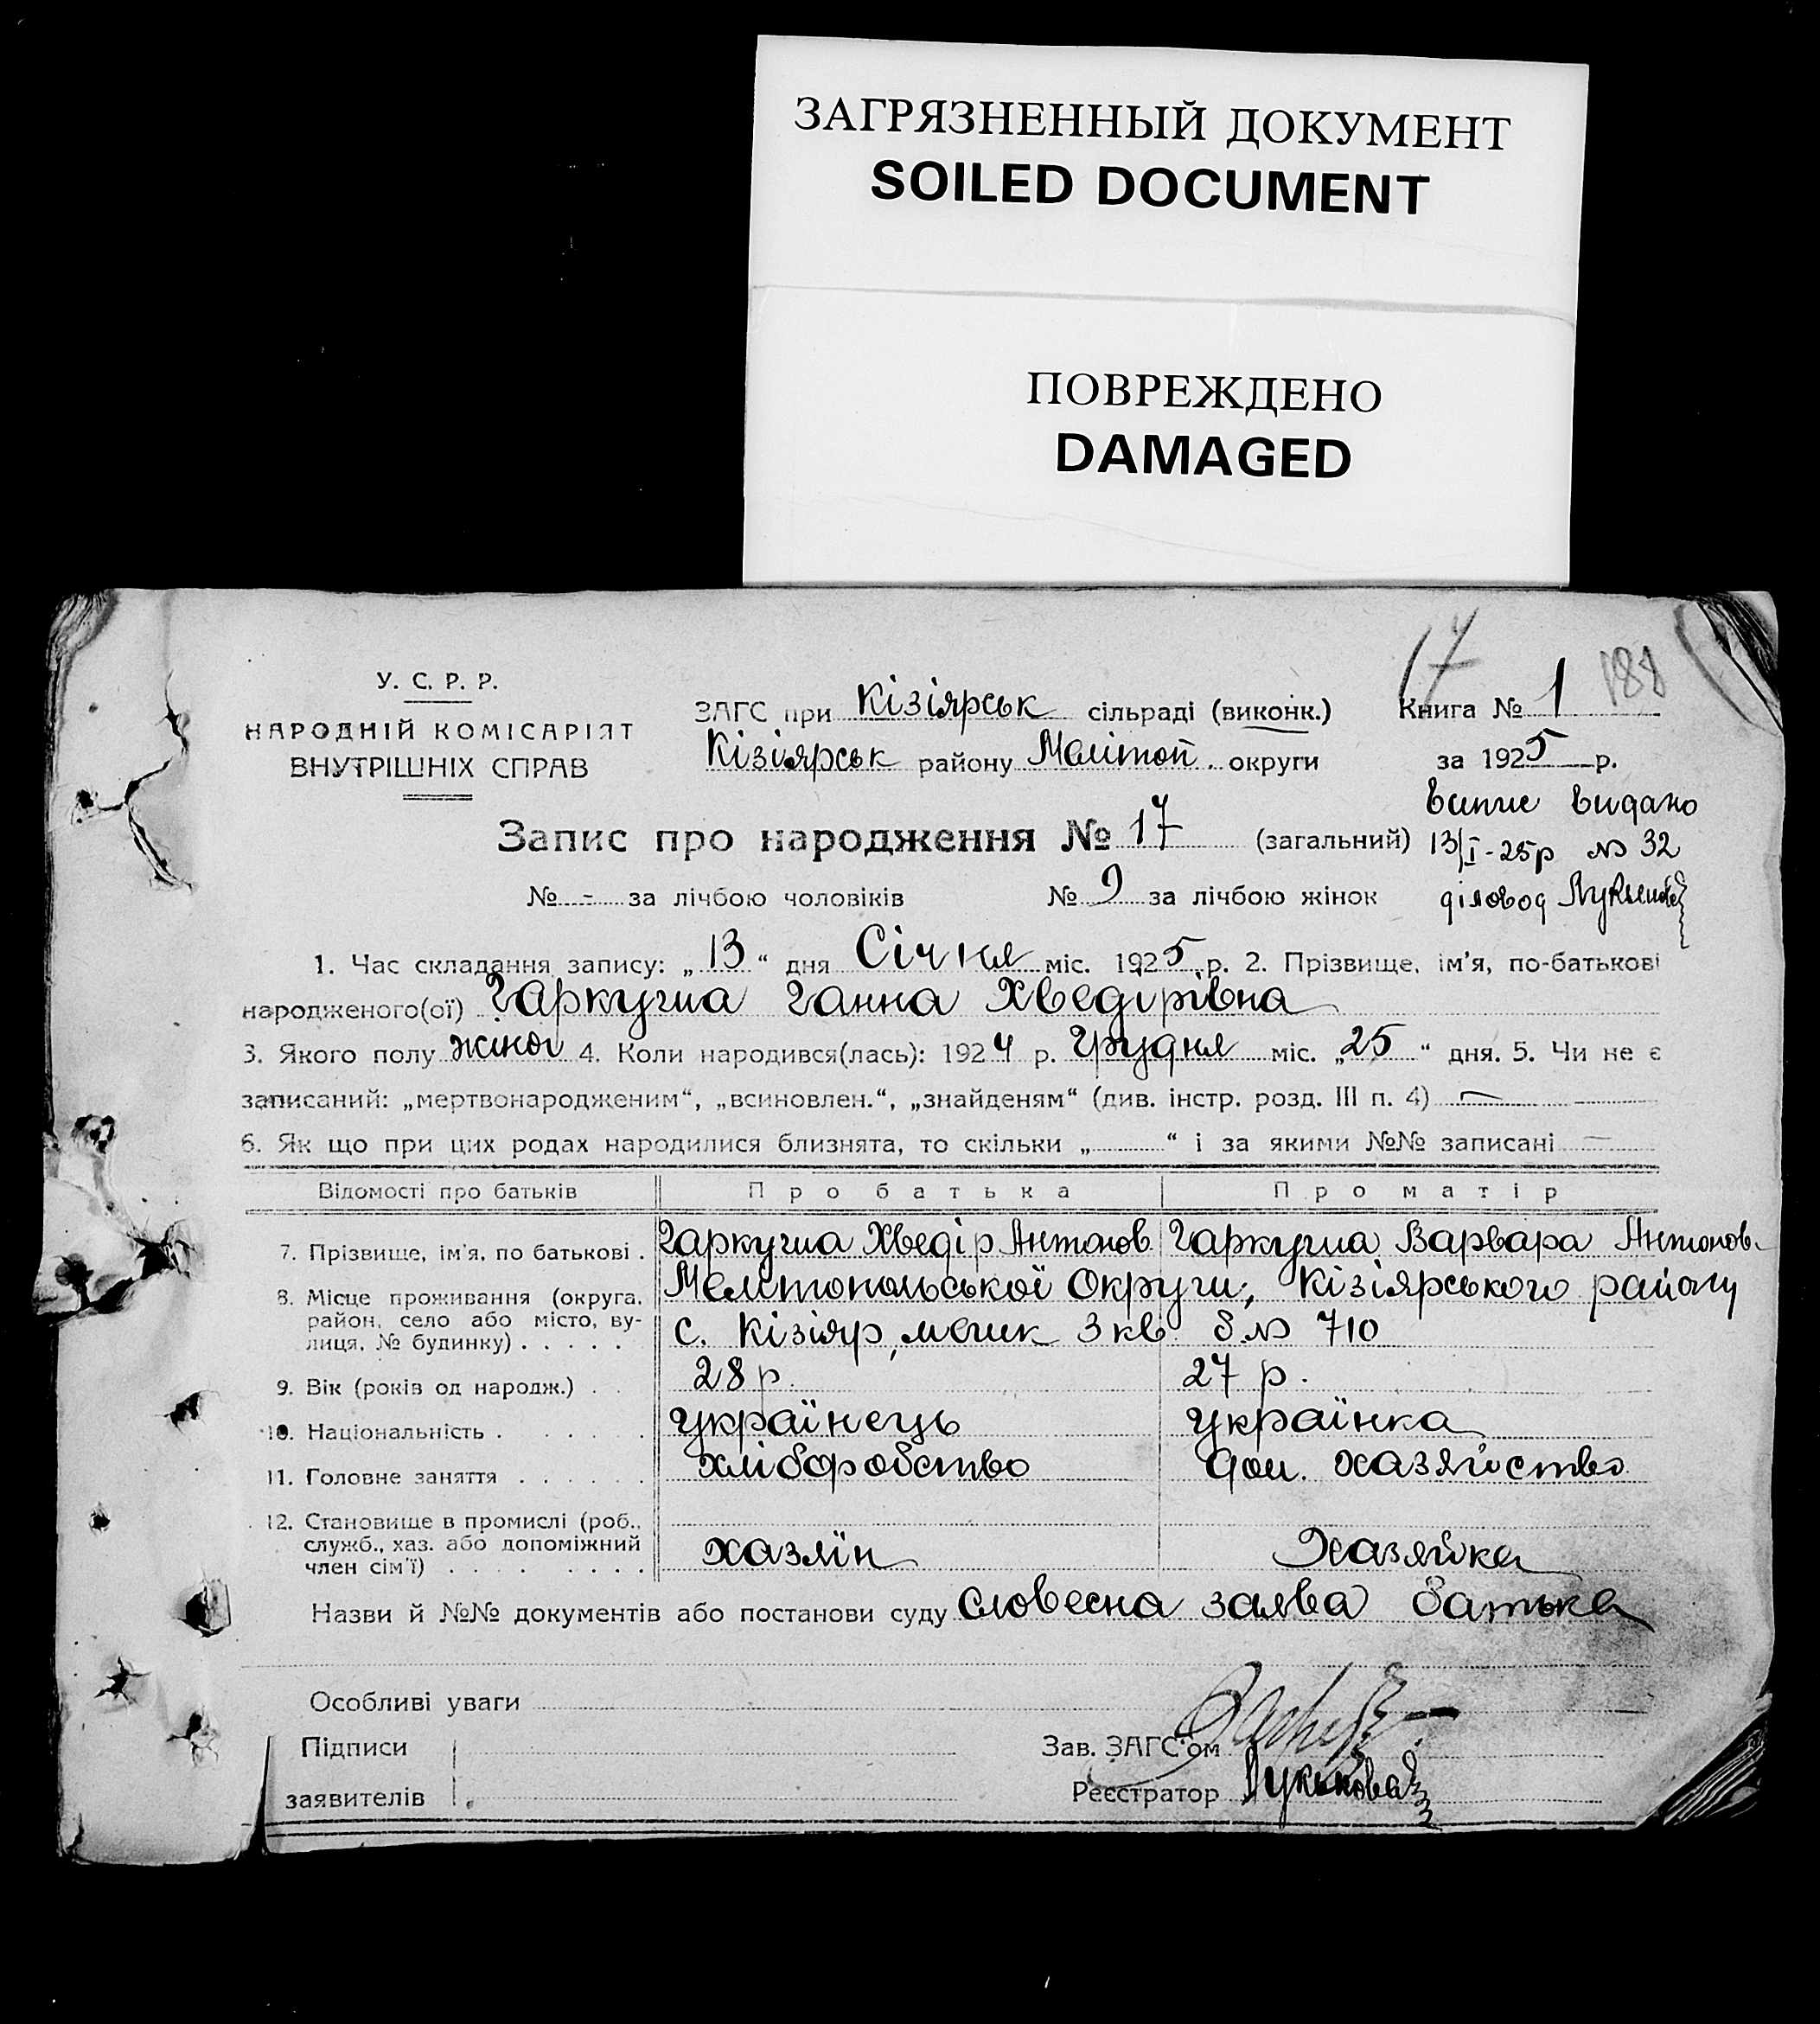 ЗАГРЯЗНЕННЫЙ ДОКУМЕНТ
SOILED DOCUMENT
ПОВРЕЖДЕНО
DAMAGED
17
188
У. С. Р. Р.
НАРОДНІЙ КОМІСАРІЯТ
ВНУТРІШНІХ СПРАВ
ЗАГС при Кізіярськ сільраді (виконк.) Книга № 1
Кізіярськ району Мелітоп. округи за 1925 р.
Запис про народження № 17 (загальний)
випис видано
13/I-25р № 32
діловод
№ - за лічбою чоловіків № 9 за лічбою жінок
1. Час складання запису: „13“ дня Січня міс. 1925 р. 2. Прізвище, ім'я, по-батькові
народженого(ої) Гаркуша Ганна Хведірівна
3. Якого полу жіноч 4. Коли народився(лась): 1924 р. Грудня міс. „25“ дня. 5. Чи не є
записаний: „мертвонародженим“, „всиновлен.“, „знайденям“ (див. інстр. розд. III п. 4) —
6. Як що при цих родах народилися близнята, то скільки „ “ і за якими №№ записані —
Відомості про батьків Про батька Про матір
7. Прізвище, ім'я, по батькові . Гаркуша Хведір Антонов Гаркуша Варвара Антонов.
8. Місце проживання (округа, район, село або місто, ву-лиця, № будинку) . . . . . Мелітопольської Округи, Кізіярського району
с. Кізіяр, мешк 3 кв. б № 710
9. Вік (років од народж.) . . 28 р. 27 р.
10. Національність . . . . . . українець українка
11. Головне заняття . . . . . . хліборобство дом. хазяйство
12. Становище в промислі (роб., служб., хаз. або допоміжний член сім'ї) . . . . . . . . хазяїн Хазяйка
Назви й №№ документів або постанови суду словесна заява батька
Особливі уваги
Підписи Зав. ЗАГС'ом
заявителів Реєстратор